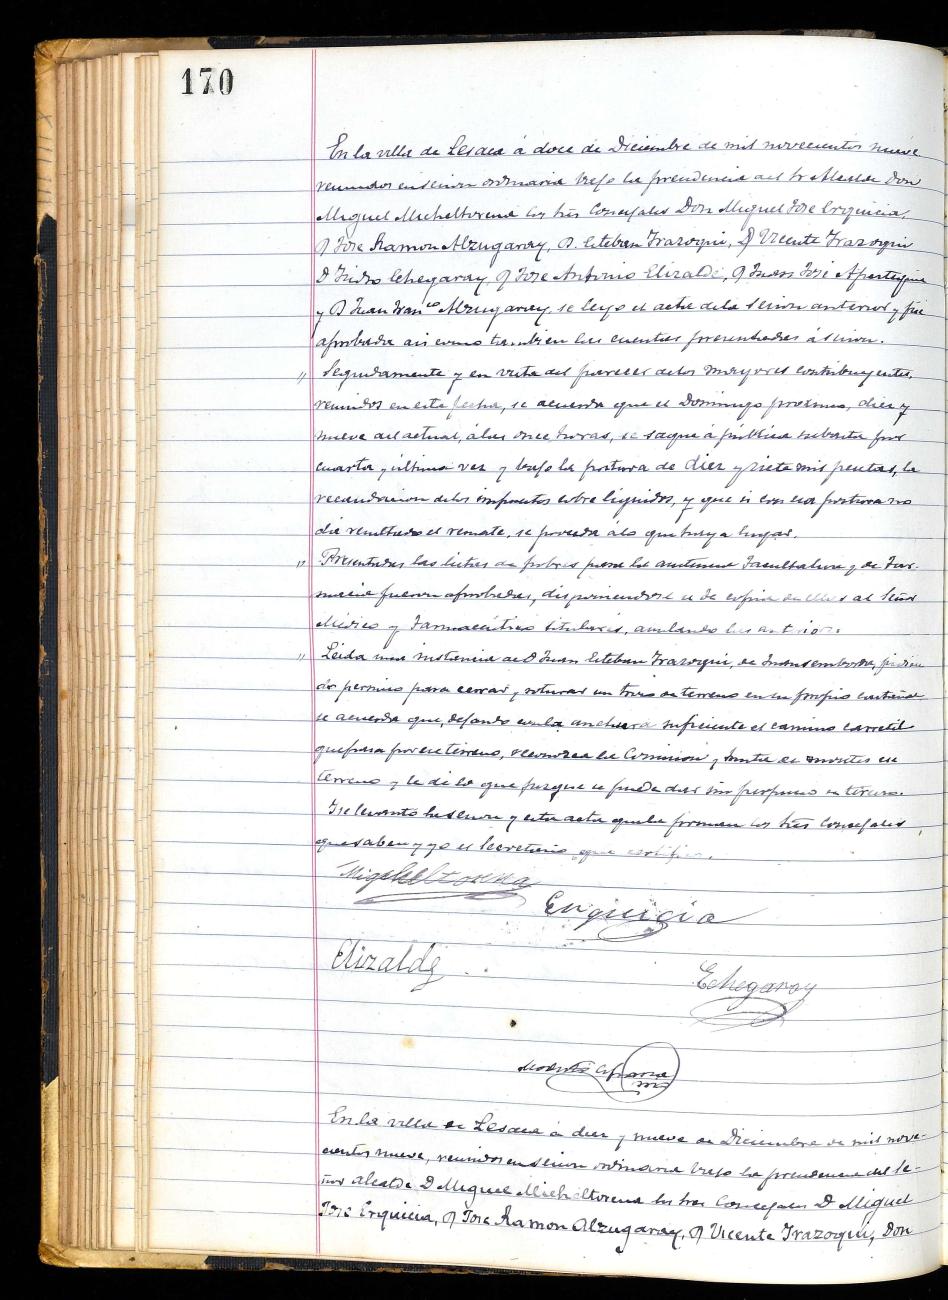 170
En la villa de Lesaca á doce de Diciembre de mil novecientos nueve
reunidos en sesion ordinaria bajo la presidencia del Sr Alcalde Don
Miguel Micheltorena los tres Concejales Don Miguel Jose Erquicia,
D Jose Ramon Alzugaray, D. Esteban Irazoqui, D Vicente Irazoqui
D Isidro Echegaray, D Jose Antonio Elizalde, D Juan José Apesteguia
y D Juan Franco Alzugaray, se leyo el acta dela sesion anterior y fué
aprobada asi como tambien las cuentas presentadas á sesion.
" Seguidamente y en vista del parecer delos mayores contribuyentes,
reunidos en esta fecha, se acuerda que el Domingo proximo, diez y
nueve del actual, álas once horas, se saque á pública subasta por
cuarta y última vez y bajo la postura de diez y siete mil pesetas, la
recaudacion delos impuestos sobre líquidos, y que si con esa postura no
da resultado el remate, se proceda álo que haya lugar.
" Presentadas las listas de pobres para la asistencia facultativa y de Far-
macia fueron aprobadas, disponiendose se de copia de ellas al Señor
Médico y Farmacéutico titulares, anulando las anteriores
" Leida una instancia de D Juan Esteban Irazoqui, de pidien
do permiso para cerrar y roturar un trozo de terreno en su propio
se acuerda que, dejando con la anchura suficiente el camino carretil
que pasa por ese terreno, reconozca la Comision y Junta de montes ese
terreno y le dé lo que juzgue se pueda dar sin perjuicio de tercero.
Y se levantó la sesion y esta acta que la forman los tres Concejales
que saben y yo el Secretario que certifico.
Migl Micheltorena
Erquicia
Elizalde
Echegaray
En la villa de Lesaca á diez y nueve de Diciembre de mil nove-
cientos nueve, reunidos en sesion ordinaria bajo la presidencia del Se-
ñor Alcalde D Miguel Micheltorena los tres Concejales D Miguel
Jose Erquicia, D Jose Ramon Alzugaray, D Vicente Irazoqui, Don